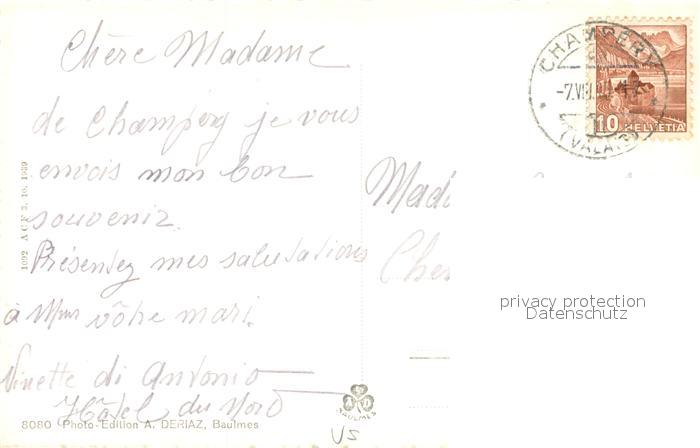 Chère Madame
de Champéry je vous
envois mon bon
souvenir.
Présentez mes salutations
à Mm vôtre mari.
Ninette di Antonio
Hôtel du Nord
8080 Photo-Edition A. DERIAZ, Baulmes
1092 A C F 3. 10. 1939
BAULMES
VS
CHAMPERY
-7.VIII.
(VALAIS)
10 HELVETIA
Mad
Cha
privacy protection
Datenschutz